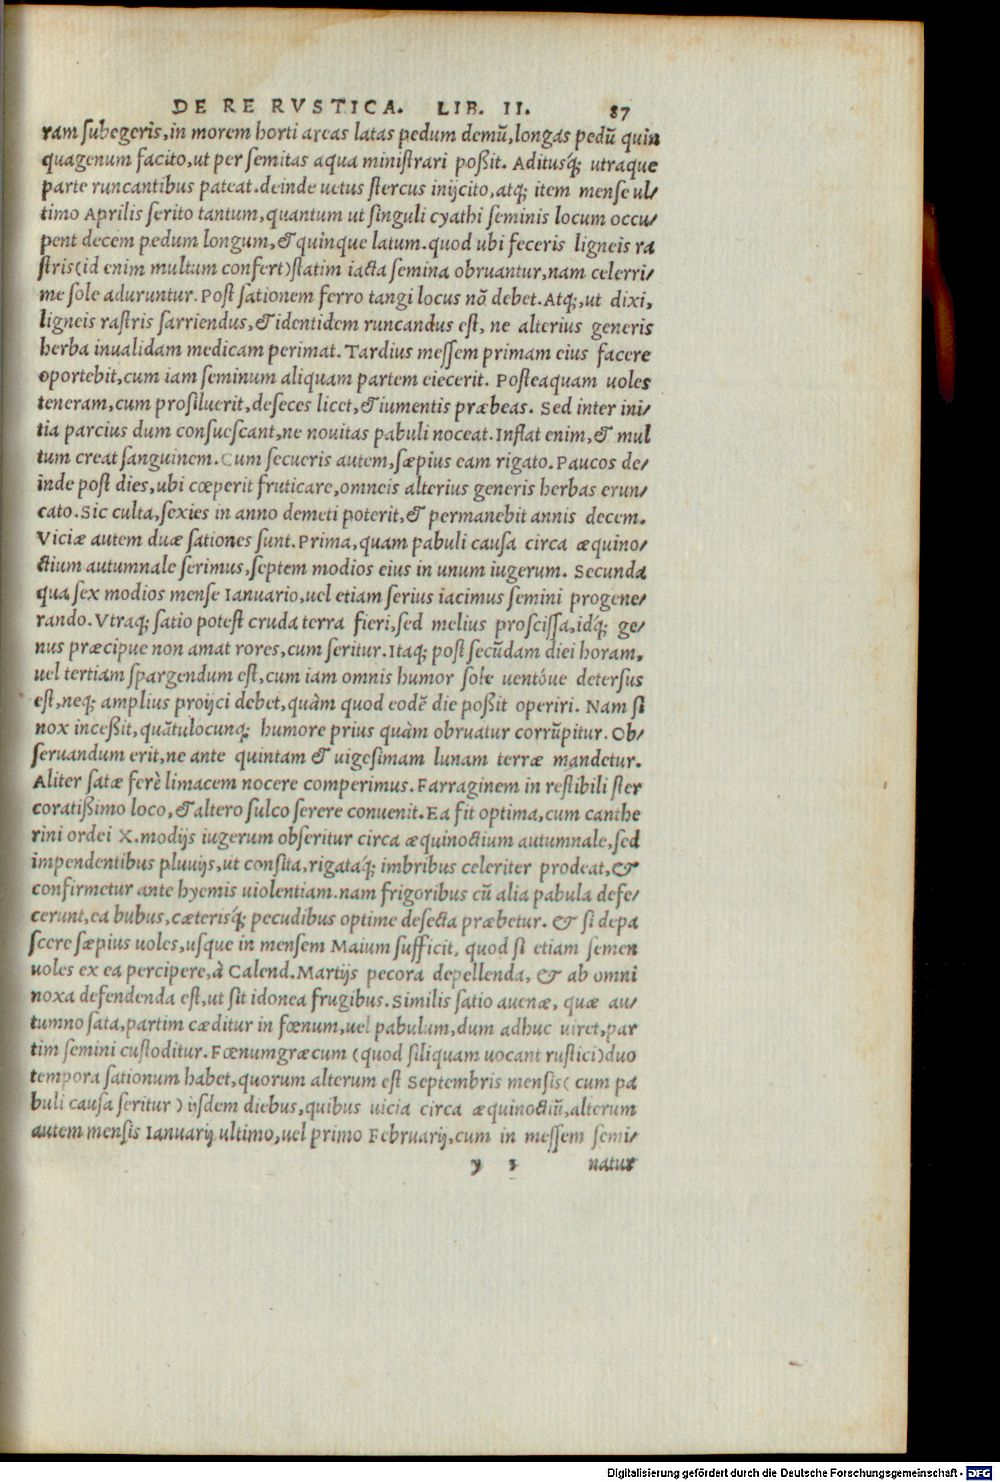 DE RE RVSTICA. LIB. II. 87
ram subegeris,in morem horti areas latas pedum demũ,longas pedũ quin
quagenum facito,ut per semitas aqua ministrari poßit. Aditusq; utraque
parte runcantibus pateat.deinde uetus stercus inijcito,atq; item mense ul/
timo Aprilis serito tantum,quantum ut singuli cyathi seminis locum occu/
pent decem pedum longum,& quinque latum.quod ubi feceris ligneis ra
stris(id enim multum confert)statim iacta semina obruantur,nam celerri/
me sole aduruntur.Post sationem ferro tangi locus nõ debet.Atq;,ut dixi,
ligneis rastris sarriendus,& identidem runcandus est, ne alterius generis
herba inualidam medicam perimat.Tardius messem primam eius facere
oportebit,cum iam seminum aliquam partem eiecerit. Posteaquam uoles
teneram,cum prosiluerit,deseces licet,& iumentis præbeas. Sed inter ini/
tia parcius dum consuescant,ne nouitas pabuli noceat.Inflat enim,& mul
tum creat sanguinem.Cum secueris autem,sæpius eam rigato.Paucos de/
inde post dies,ubi cœperit fruticare,omneis alterius generis herbas erun/
cato.Sic culta,sexies in anno demeti poterit,& permanebit annis decem.
Viciæ autem duæ sationes sunt.Prima,quam pabuli causa circa æquino/
ctium autumnale serimus,septem modios eius in unum iugerum. Secunda
qua sex modios mense Ianuario,uel etiam serius iacimus semini progene/
rando.Vtraq; satio potest cruda terra fieri,sed melius proscissa,idq; ge/
nus præcipue non amat rores,cum seritur.Itaq; post secũdam diei horam,
uel tertiam spargendum est,cum iam omnis humor sole uentóue detersus
est,neq; amplius proijci debet,quàm quod eodẽ die poßit operiri. Nam si
nox inceßit,quãtulocunq; humore prius quàm obruatur corrũpitur. Ob/
seruandum erit,ne ante quintam & uigesimam lunam terræ mandetur.
Aliter satæ ferè limacem nocere comperimus.Farraginem in restibili ster
coratißimo loco,& altero sulco serere conuenit.Ea fit optima,cum canthe
rini ordei X.modijs iugerum obseritur circa æquinoctium autumnale,sed
impendentibus pluuijs,ut consita,rigataq; imbribus celeriter prodeat,&
confirmetur ante hyemis uiolentiam.nam frigoribus cũ alia pabula defe/
cerunt,ea bubus,cæterisq; pecudibus optime desecta præbetur. & si depa
scere sæpius uoles,usque in mensem Maium sufficit, quod si etiam semen
uoles ex ea percipere,à Calend.Martijs pecora depellenda, & ab omni
noxa defendenda est,ut sit idonea frugibus.Similis satio auenæ, quæ au/
tumno sata,partim cæditur in fœnum,uel pabulum,dum adhuc uiret,par
tim semini custoditur.Fœnumgræcum (quod siliquam uocant rustici)duo
tempora sationum habet,quorum alterum est Septembris mensis( cum pa
buli causa seritur) ijsdem diebus,quibus uicia circa æquinoctiũ,alterum
autem mensis Ianuarij ultimo,uel primo Februarij,cum in messem semi/
y 3 natur
Digitalisierung gefördert durch die Deutsche Forschungsgemeinschaft - DFG